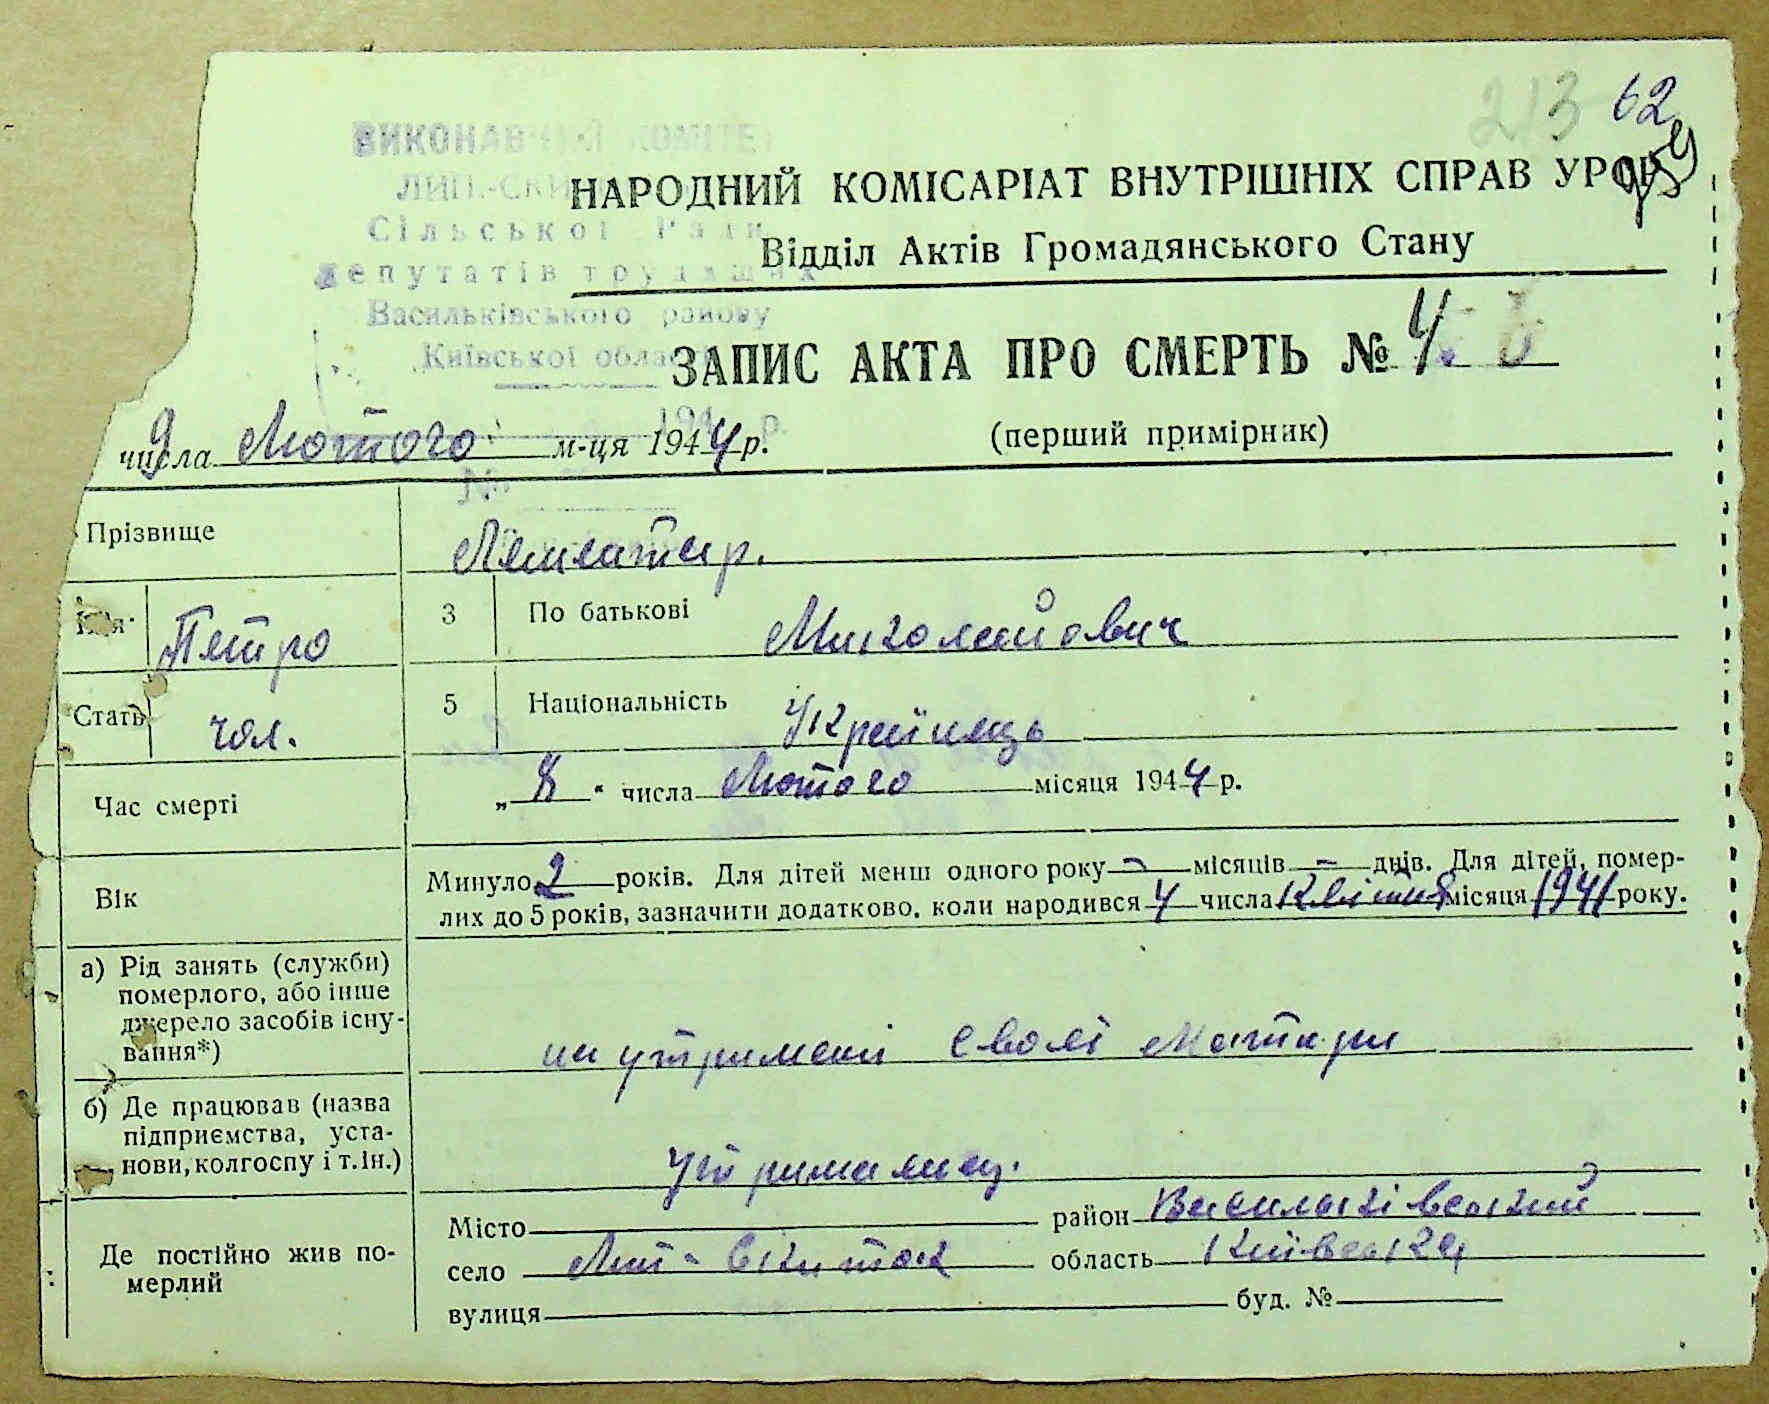 213 62
ВИКОНАВЧИЙ КОМІТЕТ
ЛИП.-СКИ
Сільської Ради
депутатів трудящих
Васильківського району
Київської області
194 р.
№
НАРОДНИЙ КОМІСАРІАТ ВНУТРІШНІХ СПРАВ УРСР
Відділ Актів Громадянського Стану
ЗАПИС АКТА ПРО СМЕРТЬ № 4
9 числа Лютого м-ця 1944 р.
(перший примірник)
Прізвище
Ім'я Петро 3 По батькові Миколайович
Стать чол. 5 Національність Українець
Час смерті „ 8 “ числа Лютого місяця 1944 р.
Вік Минуло 2 років. Для дітей менш одного року – місяців – днів. Для дітей, помер-
лих до 5 років, зазначити додатково, коли народився 4 числа Квітня місяця 1941 року.
а) Рід занять (служби)
померлого, або інше
джерело засобів існу-
вання*)
на утримані своєї Матери
б) Де працював (назва
підприємства, уста-
нови, колгоспу і т. ін.)
Утриманец.
Де постійно жив по-
мерлий
Місто район Васильківський
село Лип-Скиток область Київська
вулиця буд. №